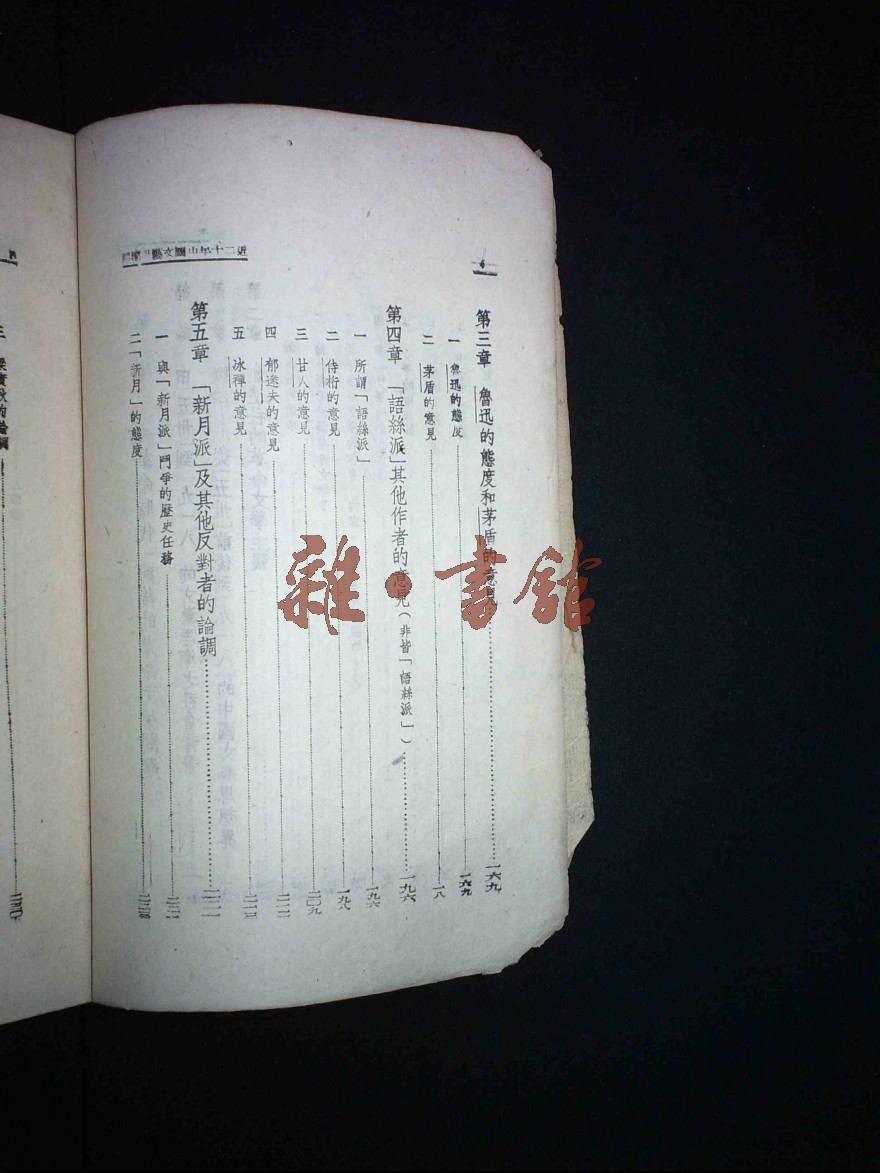 近二十年中國文藝思潮論
第三章 魯迅的態度和茅盾的意見……一六九
一 魯迅的態度……一六九
二 茅盾的意見……一八
第四章 「語絲派」其他作者的意見(非皆「語絲派」)……一九六
一 所謂「語絲派」……一九六
二 侍桁的意見……一九八
三 甘人的意見……二〇九
四 郁達夫的意見……二一二
五 冰禪的意見……二一三
第五章 「新月派」及其他反對者的論調……二二一
一 與「新月派」鬥爭的歷史任務……二二一
二 「新月」的態度
三 梁實秋的論調
雜·書館